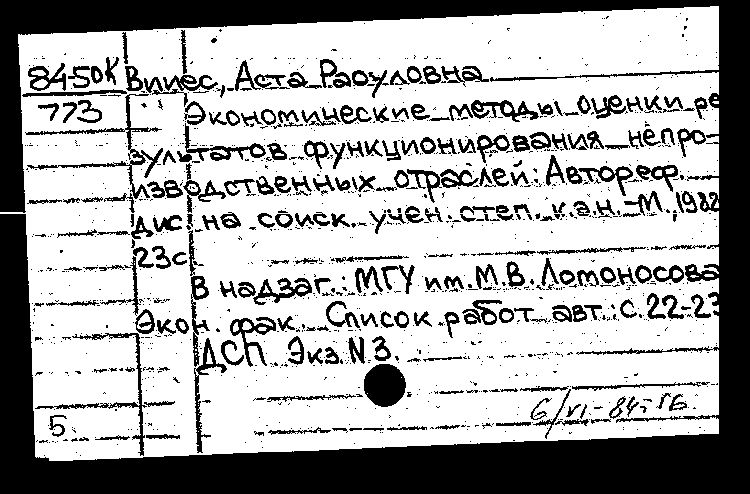 84-50К Вииес, Аста Рауловна
773 Экономические методы оценки ре
зультатов функционирования непро-
изводственных отраслей: Автореф.
дис на соиск. учен. степ. к.э.н. -М., 1982
23с
В надзаг.: МГУ им. М.В. Ломоносова
Экон. фак. Список работ авт.: с. 22-23
ДСП. Экз. N 3.
6/VI-84г.
5